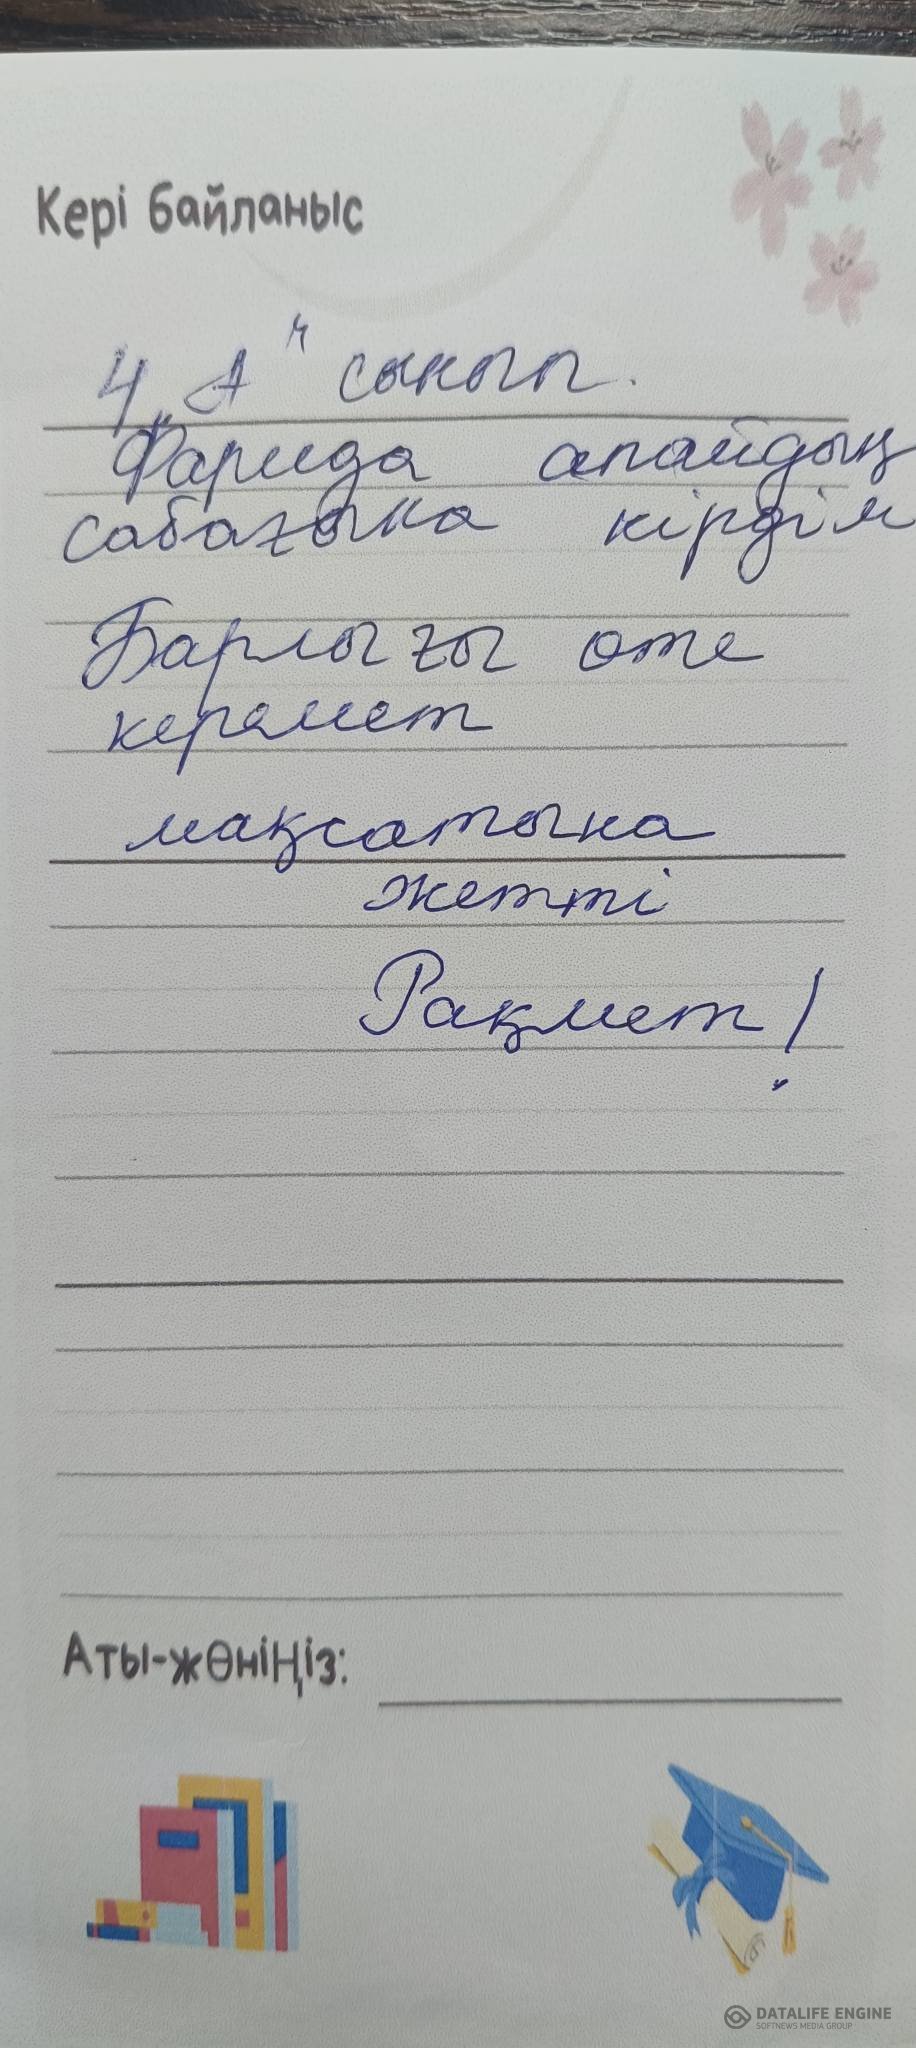 Кері байланыс
4 „А" сынып.
Фарида апайдың
сабағына кірдім
Барлығы өте
керемет
мақсатына
жетті
Рақмет!
Аты-жөніңіз:
DATALIFE ENGINE
SOFTNEWS MEDIA GROUP